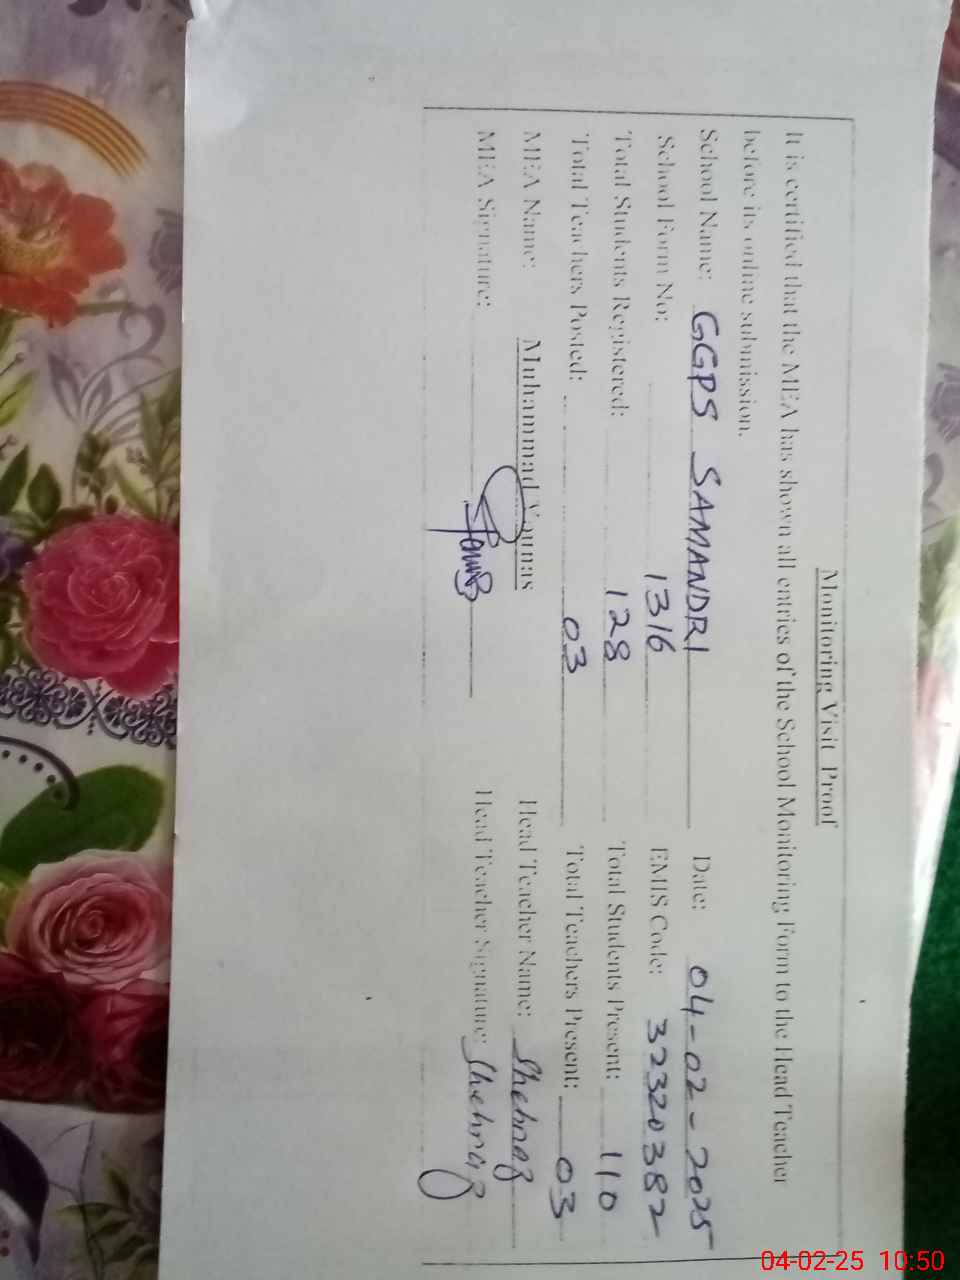 Monitoring Visit Proof
It is certified that the MEA has shown all entries of the School Monitoring Form to the Head Teacher
before its online submission.
School Name: GGPS SAMANDRI Date: 04-02-2025
School Form No: 1316 EMIS Code: 32320382
Total Students Registered: 128 Total Students Present: 110
Total Teachers Posted: 03 Total Teachers Present: 03
MEA Name: Muhammad Younas Head Teacher Name: Shehnaz
MEA Signature: Head Teacher Signature: Shehnaz
04-02-25 10:50